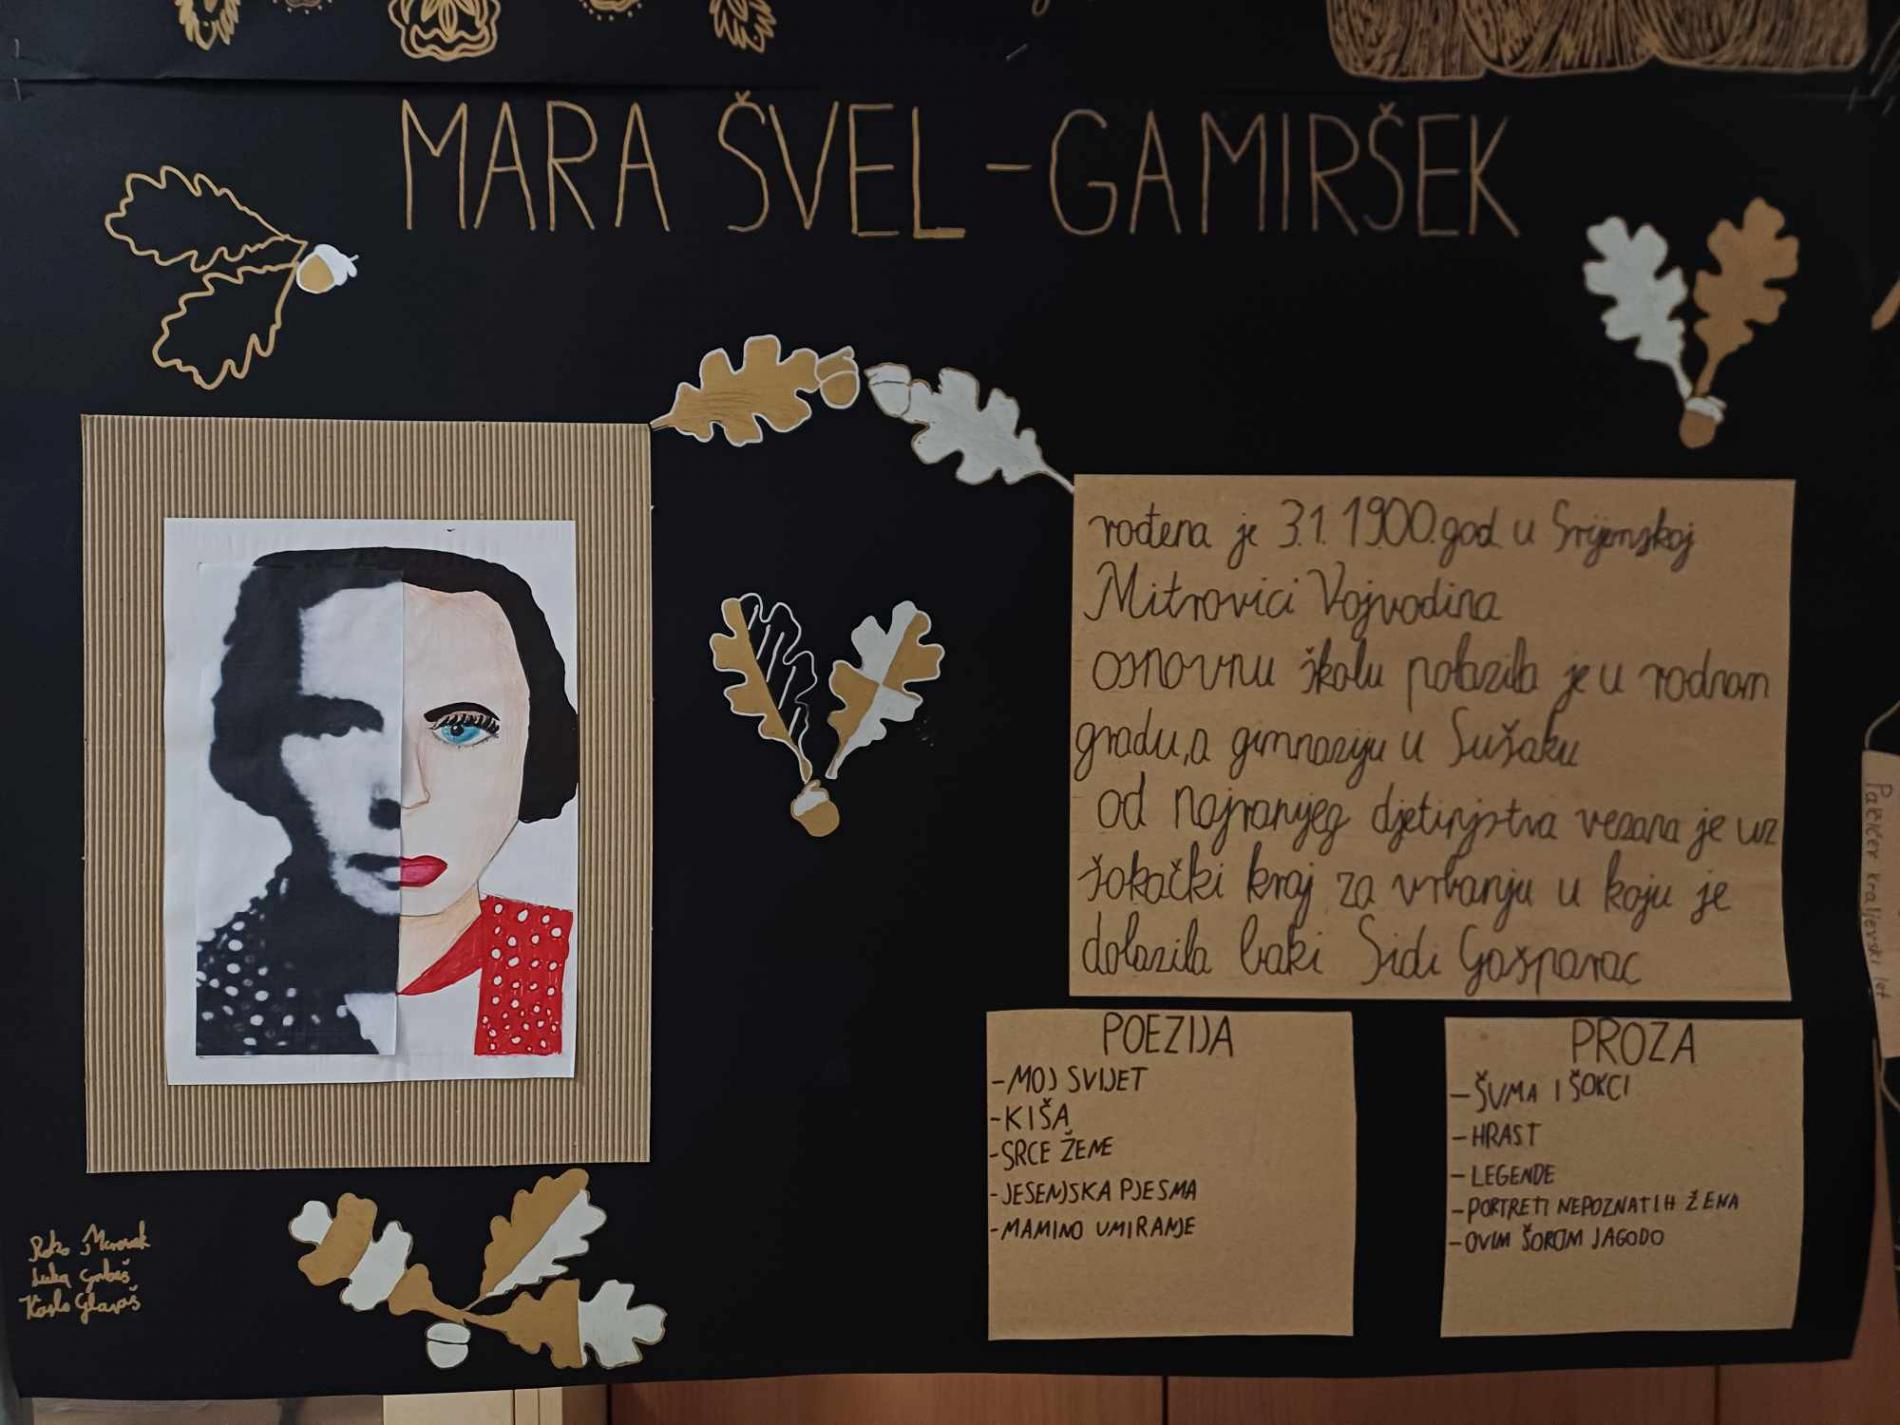 MARA ŠVEL-GAMIRŠEK
rođena je 3.1.1900.god. u Srijemskoj
Mitrovici Vojvodina
osnovnu školu polazila je u rodnom
gradu,a gimnaziju u Sušaku
od najranijeg djetinjstva vezana je uz
šokački kraj za vrbanju u koju je
dolazila baki Sidi Gašparac
POEZIJA
-MOJ SVIJET
-KIŠA
-SRCE ŽENE
-JESENJSKA PJESMA
-MAMINO UMIRANJE
PROZA
-ŠUMA I ŠOKCI
-HRAST
-LEGENDE
-PORTRETI NEPOZNATIH ŽENA
-OVIM ŠOROM JAGODO
Luka